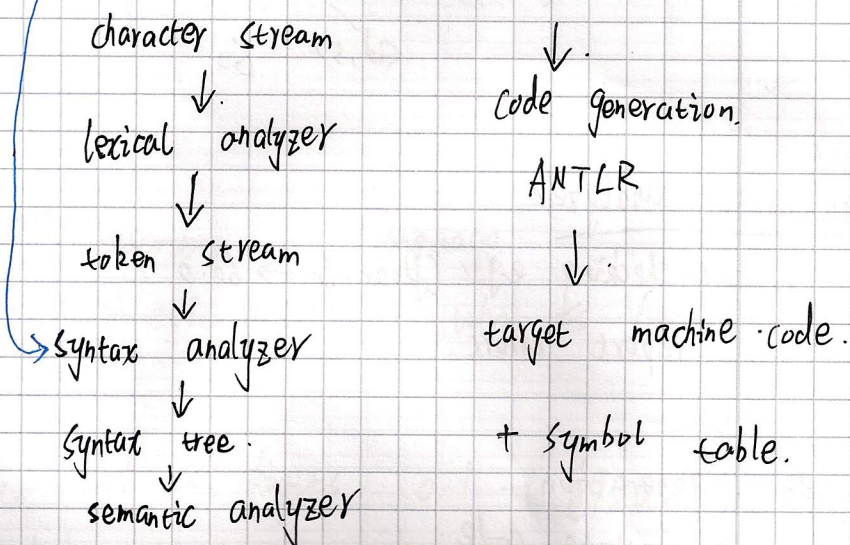 character stream
↓
lexical analyzer
↓
token stream
↓
syntax analyzer
↓
syntax tree.
↓
semantic analyzer
↓
code generation.
ANTLR
↓
target machine code.
+ symbol table.